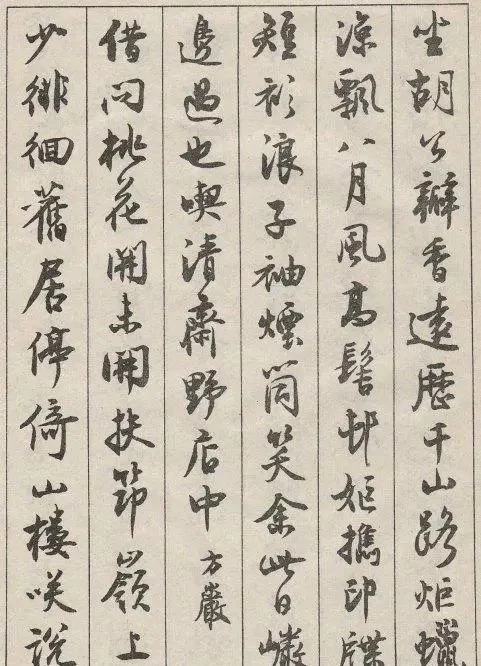 坐胡公瓣香遠歷千山路炬蠟
涼飄八月風高髻邨姬攜印牒
短衫浪子袖煙筒笑余此日巖
邊過也喫清齋野店中 方巖
借問桃花開未開扶筇嶺上
少徘徊舊居停倚山樓咲說